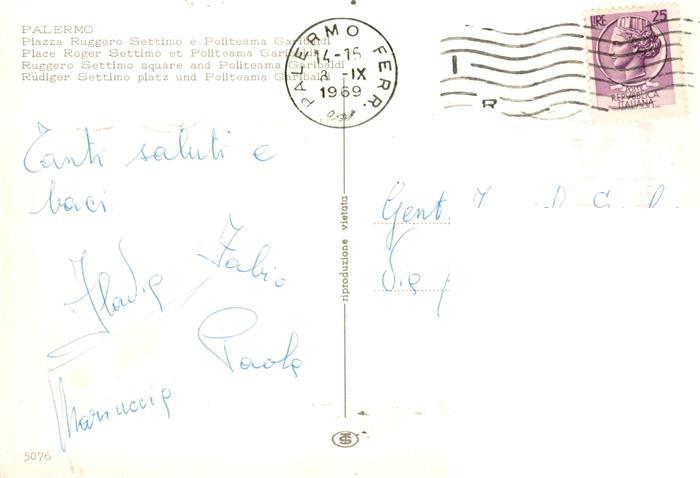 PALERMO
Piazza Ruggero Settimo e Politeama Garibaldi
Place Roger Settimo et Politeama Garibaldi
Ruggero Settimo square and Politeama Garibaldi
Rüdiger Settimo platz und Politeama Garibaldi
PALERMO FERR.
14-15
8 -IX
1969
LIRE 25
POSTE
REPVBBLICA
ITALIANA
Tanti saluti e
baci
Fabio
Flavia
Paola
Mariuccia
riproduzione vietata
Gent.
Via
5076